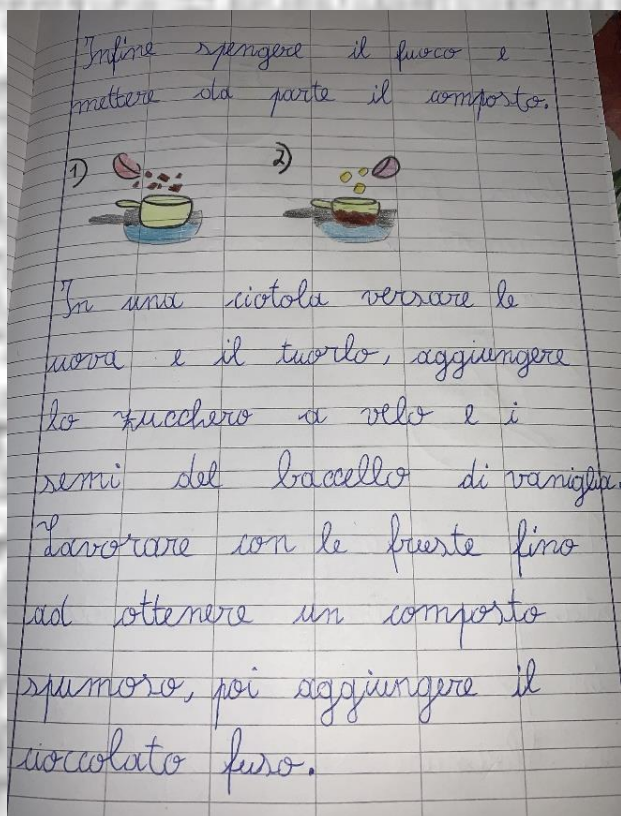 Infine spengere il fuoco e
mettere da parte il composto.
1) 2)
In una ciotola versare le
uova e il tuorlo, aggiungere
lo zucchero a velo e i
semi del baccello di vaniglia.
Lavorare con le fruste fino
ad ottenere un composto
spumoso, poi aggiungere il
cioccolato fuso.